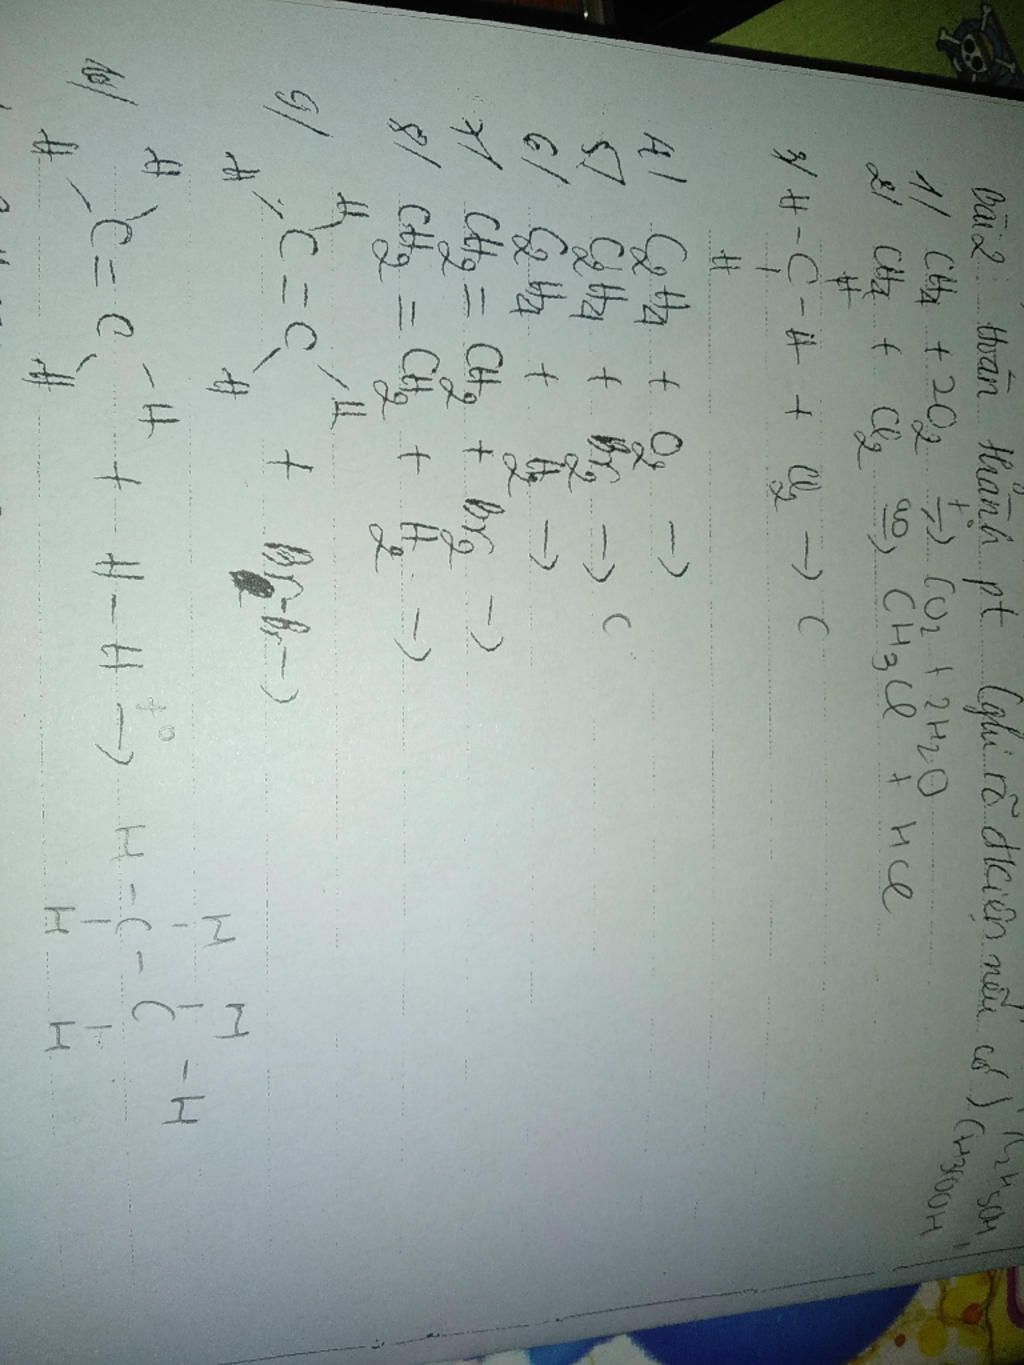 Bài 2: Hoàn thành pt (ghi rõ đkiện nếu có) C2H5OH,
CH3COOH,
1/ CH4 + 2O2 →t° CO2 + 2H2O
2/ CH4 + Cl2 as→ CH3Cl + HCl
H
3/ H - C - H + Cl2 → C
H
4/ C2H4 + O2 →
5/ C2H4 + Br2 → C
6/ C2H4 + H2 →
7/ CH2 = CH2 + Br2 →
8/ CH2 = CH2 + H2 →
H H
9/ C = C + Br-Br →
H H
H H t° H H
10/ C = C + H - H → H - C - C - H
H H H H